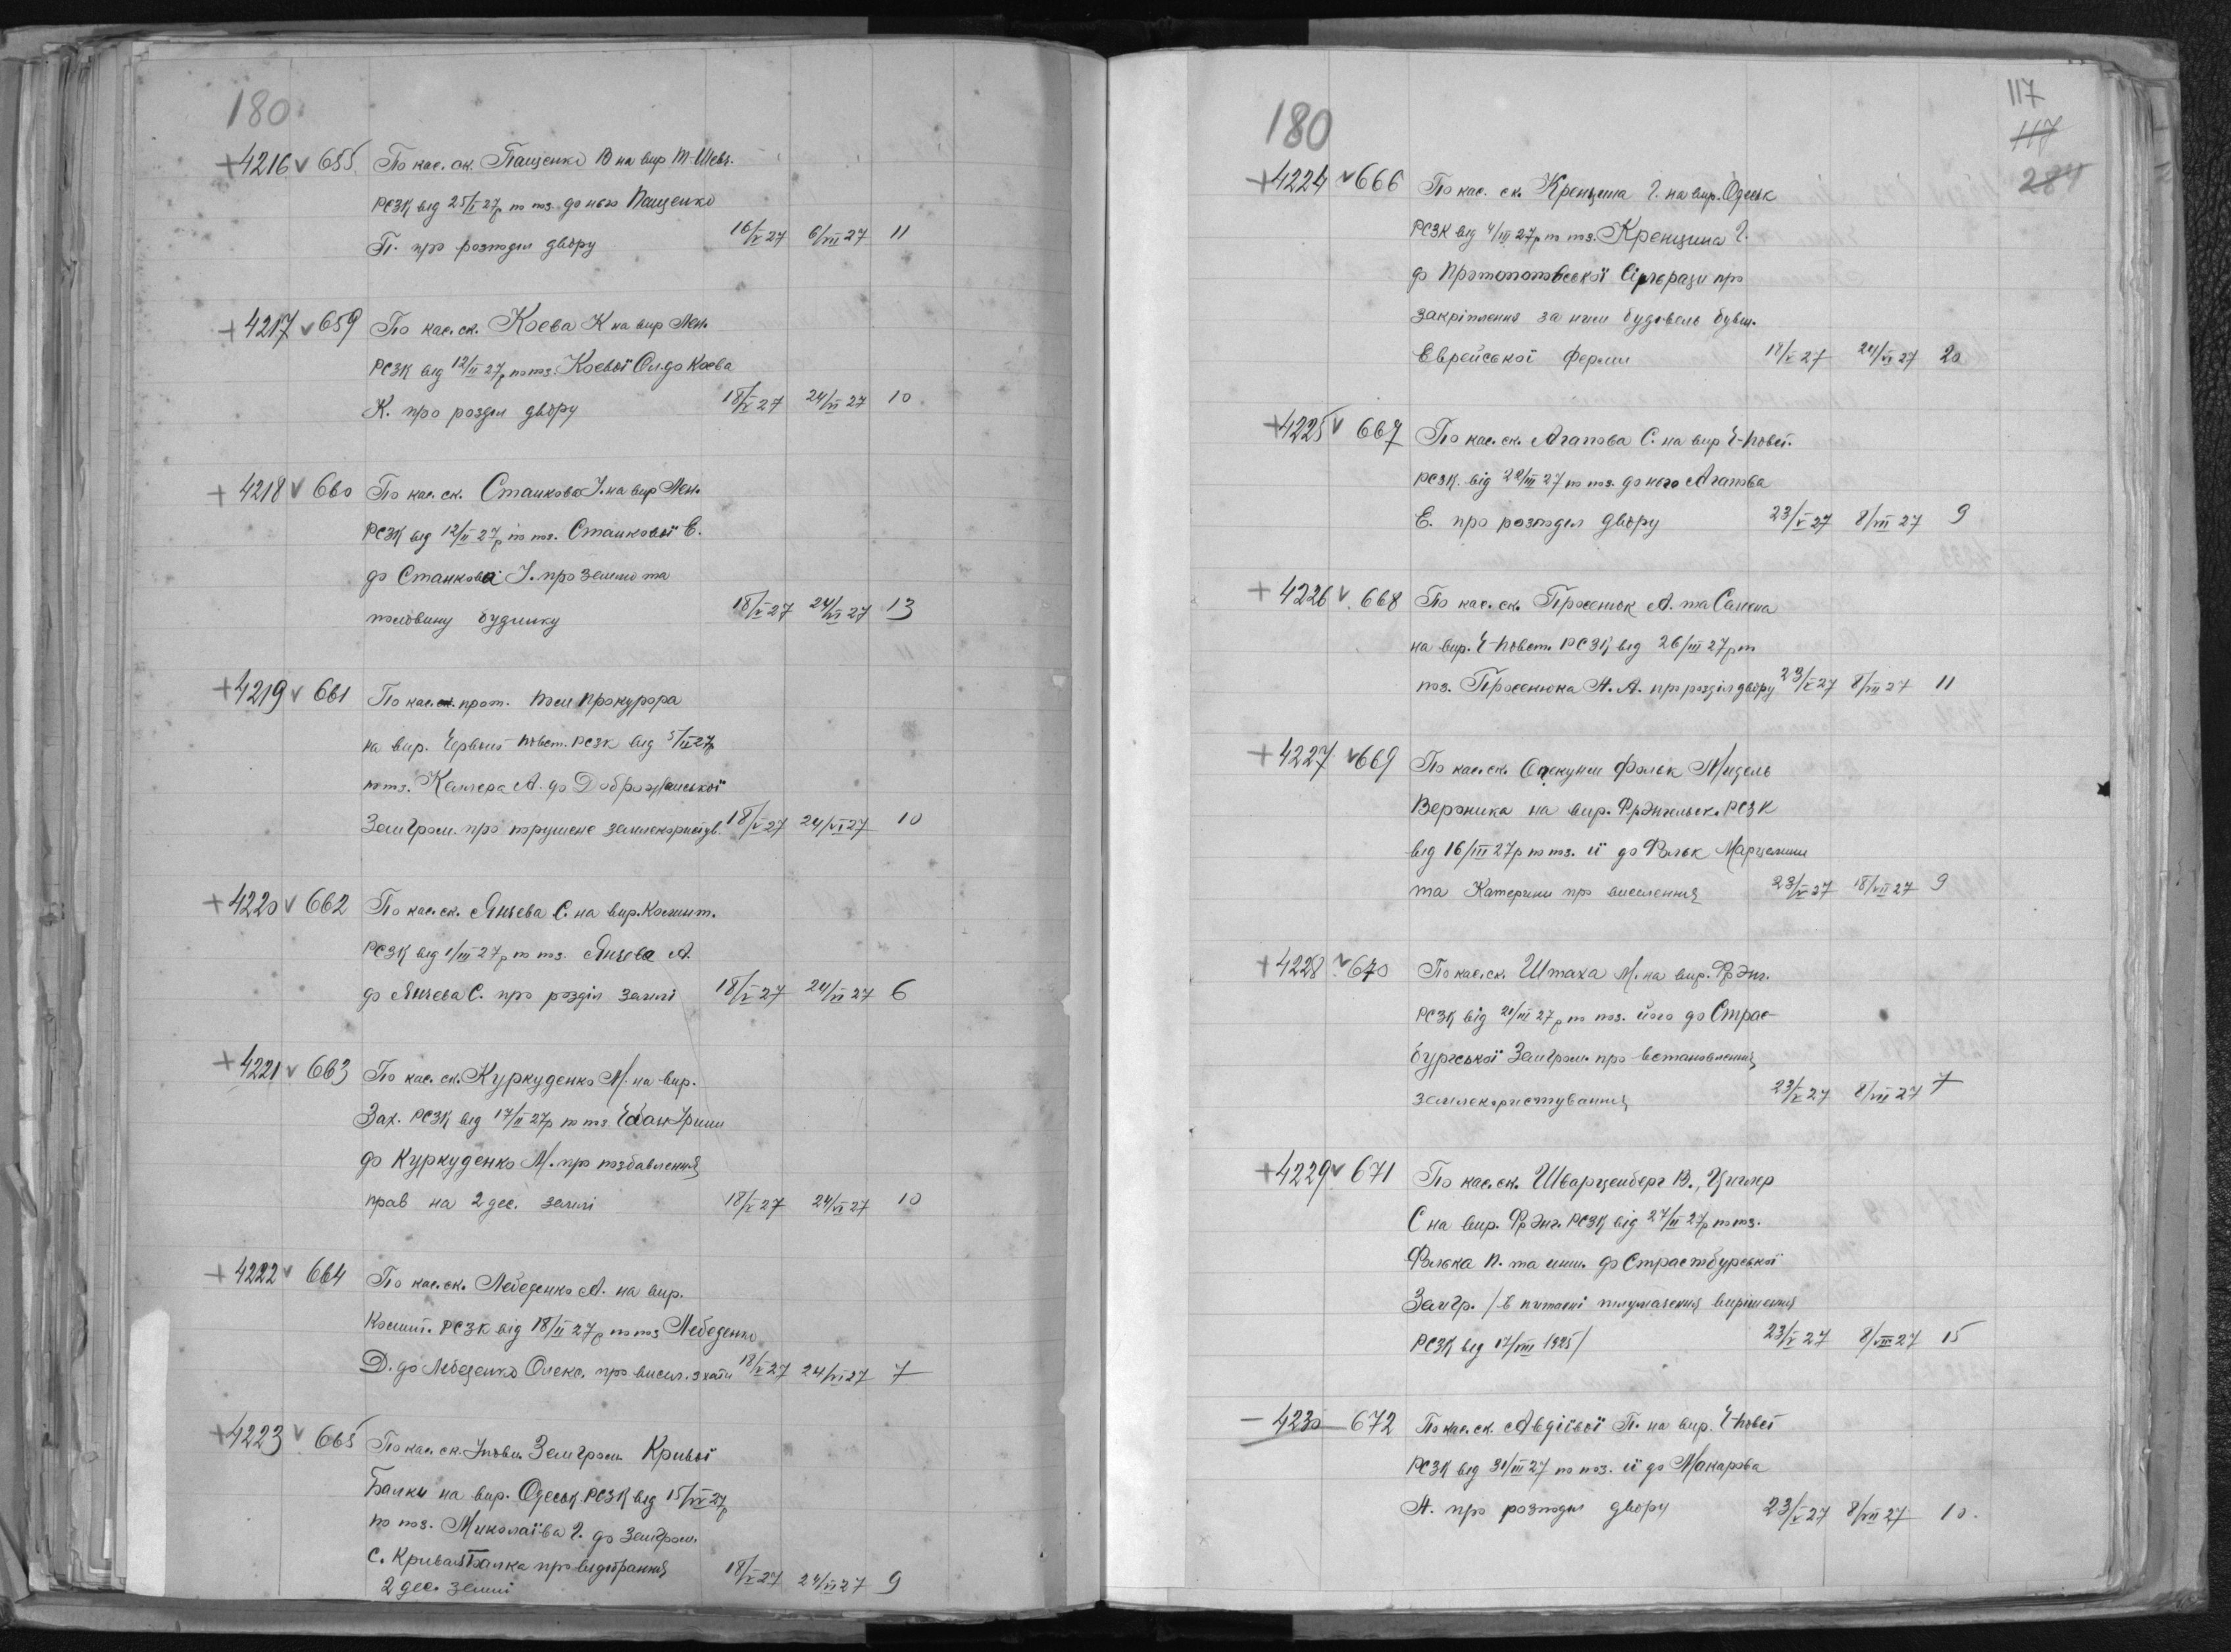 180
+4216 v 655 По кас. ск. Пащенко В на вир Т-Шевч.
РСЗК від 25/II 27р по поз. до нього Пащенко
П. про розподіл двору 16/V 27 6/VII 27 11
+4217 v 659 По кас. ск. Коєва К на вир Лен.
РСЗК від 12/II 27р по поз. Коєвої Ол. до Коєва
К. про розділ двору 18/V 27 24/VI 27 10
+4218 v 660 По кас. ск. Станкова І. на вир Лен.
РСЗК від 12/II 27р по поз. Станкової Е.
до Станкова І. про землю та
половину будинку 18/V 27 24/VI 27 13
+4219 v 661 По кас. прот. Пом Прокурора
на вир. Червоно повст. РСЗК від 5/II 27р
по поз. Келлера А. до Доброжанської
Земгром. про порушене землекористув. 18/V 27 24/VI 27 10
+4220 v 662 По кас. ск. Янчева С. на вир. Комінт.
РСЗК від 1/III 27р по поз. Янчева А.
до Янчева С. про розділ землі 18/V 27 24/VI 27 6
+4221 v 663 По кас. ск. Куркуденко М. на вир.
Зах. РСЗК від 17/II 27р по поз. Чабан Ірини
до Куркуденко М. про позбавлення
прав на 2 дес. землі 18/V 27 24/VI 27 10
+4222 v 664 По кас. ск. Лебеденко А. на вир.
Комінт. РСЗК від 18/II 27р по поз Лебеденко
Д. до Лебеденко Олекс. про висел. з хати 18/V 27 24/VI 27 7
+4223 v 665 По кас. ск. Уповн. Земгром. Кривої
Балки на вир. Одеськ РСЗК від 15/IV 27р
по поз. Миколаїва Г. до Земгром.
с. Кривая Балка про відібрання 18/V 27 24/VI 27 9
2 дес. землі
117
117
284
180
+4224 v 666 По кас. ск. Кренцина Г. на вир. Одеськ
РСЗК від 4/III 27р по поз. Кренцина Г.
до Протопоповської Сільради про
закріплення за ним будовель бувш.
Еврейської ферми 18/V 27 24/VI 27 20
+4225 v 667 По кас. ск. Агапова С. на вир Ч-Повст.
РСЗК. від 28/III 27 по поз. до нього Агапова
Е. про розподіл двору 23/V 27 8/VII 27 9
+4226 v 668 По кас. ск. Проценюк А. та Самена
на вир. Ч-Повст. РСЗК від 26/III 27р по
поз. Проценюка А. А. про розділ двору 23/V 27 8/VII 27 11
+4227 v 669 По кас. ск. Опекунши Фольк Мидель
Вероника на вир. Ф-рЭнгельск. РСЗК
від 16/III 27р по поз. її до Фольк Марцелини
та Катерини про виселення 23/V 27 18/VII 27 9
+4228 v 670 По кас. ск. Штаха М. на вир. ФрЭнг.
РСЗК від 20/III 27р по поз. його до Страс-
бургської Земгром. про встановлення
землекористування 23/V 27 8/VII 27 7
+4229 v 671 По кас. ск. Шварценберг В., Циглер
С на вир. ФрЭнг. РСЗК від 27/II 27р по поз.
Фолька П. та инш. до Страстбурської
Земгр. /в питанні тлумачення вирішення
РСЗК від 17/VIII 1925/ 23/V 27 8/VII 27 15
- 4230 672 По кас. ск. Авдієвої П. на вир. Ч-Повст
РСЗК від 31/III 27 по поз. її до Макарова
А. про розподіл двору 23/V 27 8/VII 27 10.